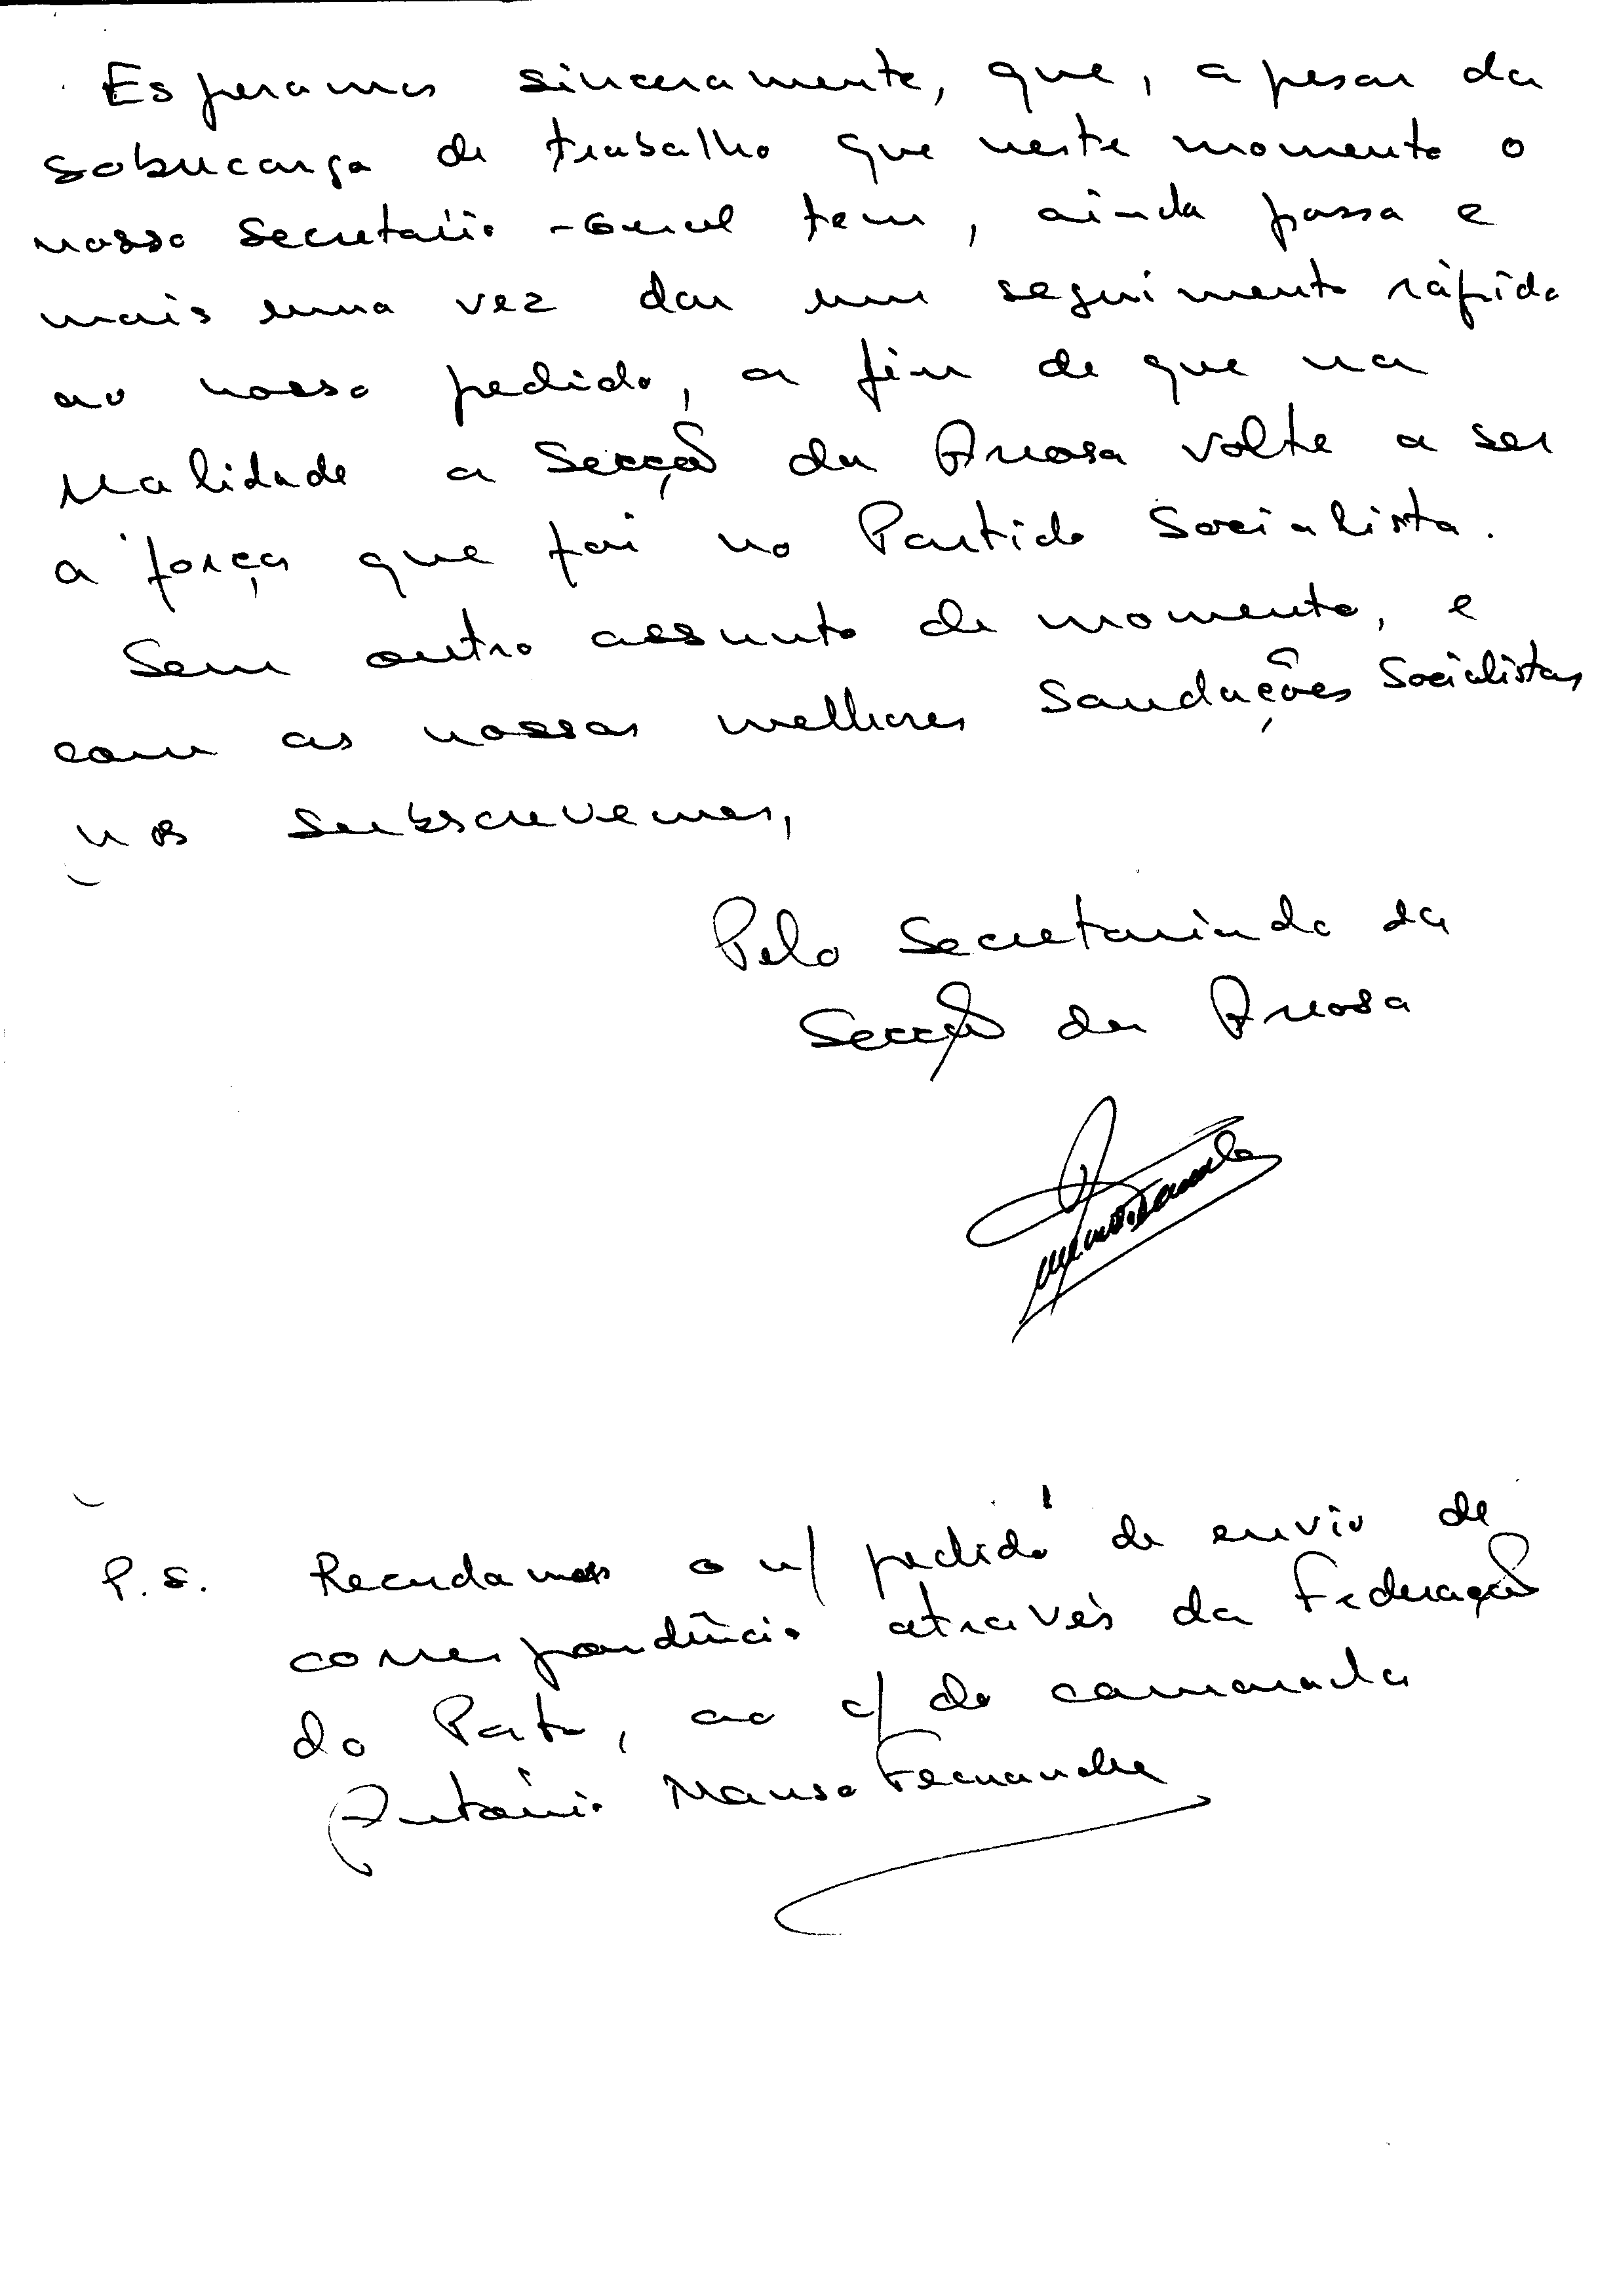 Esperamos sinceramente, que, apesar da
sobrecarga de trabalho que neste momento o
nosso Secretário-Geral tem, ainda possa e
mais uma vez dar um seguimento rápido
ao nosso pedido, a fim de que na
realidade a Secção da Areosa volte a ser
a força que foi no Partido Socialista.
Sem outro assunto de momento, e
com as nossas melhores Saudações Socialistas
nos subscrevemos,
Pelo Secretariado da
Secção da Areosa
P.S. Recordamos o n/ pedido de envio de
correspondência através da Federação
do Porto, ao c/ do camarada
António Manso Fernandes